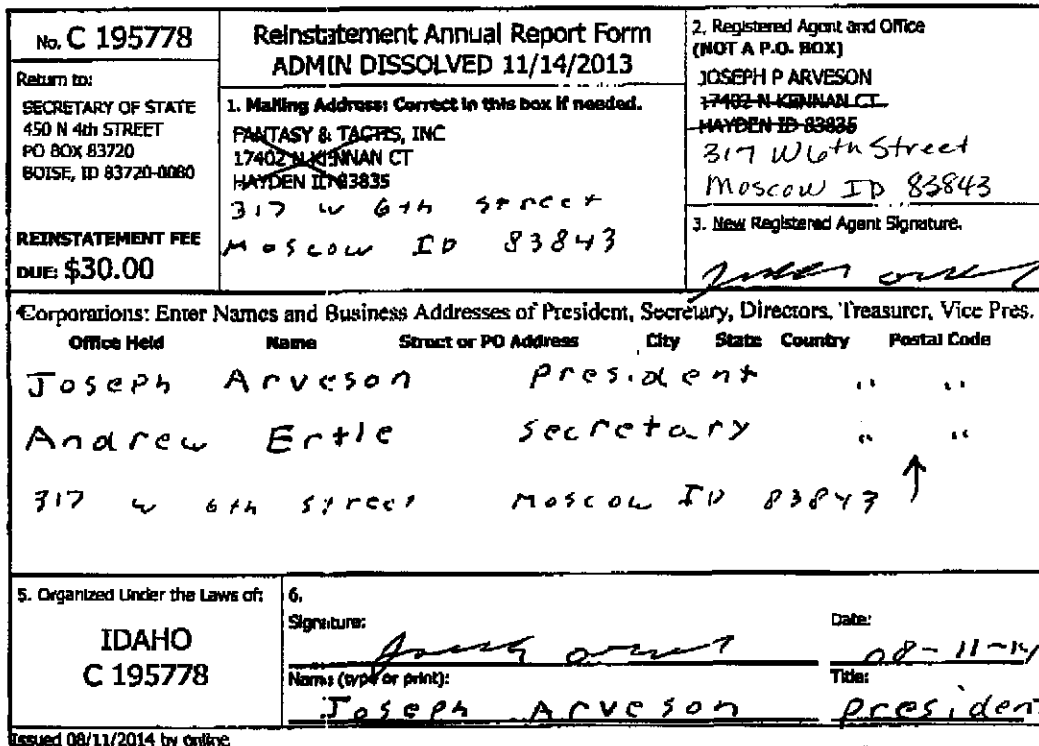 No. C 195778
Return to:
SECRETARY OF STATE
450 N 4th STREET
PO BOX 83720
BOISE, ID 83720-0080
REINSTATEMENT FEE
DUE: $30.00
Reinstatement Annual Report Form
ADMIN DISSOLVED 11/14/2013
1. Mailing Address: Correct in this box if needed.
FANTASY & TACTICS, INC
17402 N KENNAN CT
HAYDEN ID 83835
317 w 6th street
Moscow ID 83843
2. Registered Agent and Office
(NOT A P.O. BOX)
JOSEPH P ARVESON
17402 N KENNAN CT
HAYDEN ID 83835
317 W 6th Street
Moscow ID 83843
3. New Registered Agent Signature.
Corporations: Enter Names and Business Addresses of President, Secretary, Directors, Treasurer, Vice Pres.
Office Held Name Street or PO Address City State Country Postal Code
Joseph Arveson president " "
Andrew Ertle secretary " "
317 w 6th street Moscow ID 83843 ↑
5. Organized Under the Laws of:
IDAHO
C 195778
6.
Signature:
Date:
08-11-14
Name (type or print):
Title:
Joseph Arveson president
Issued 08/11/2014 by online